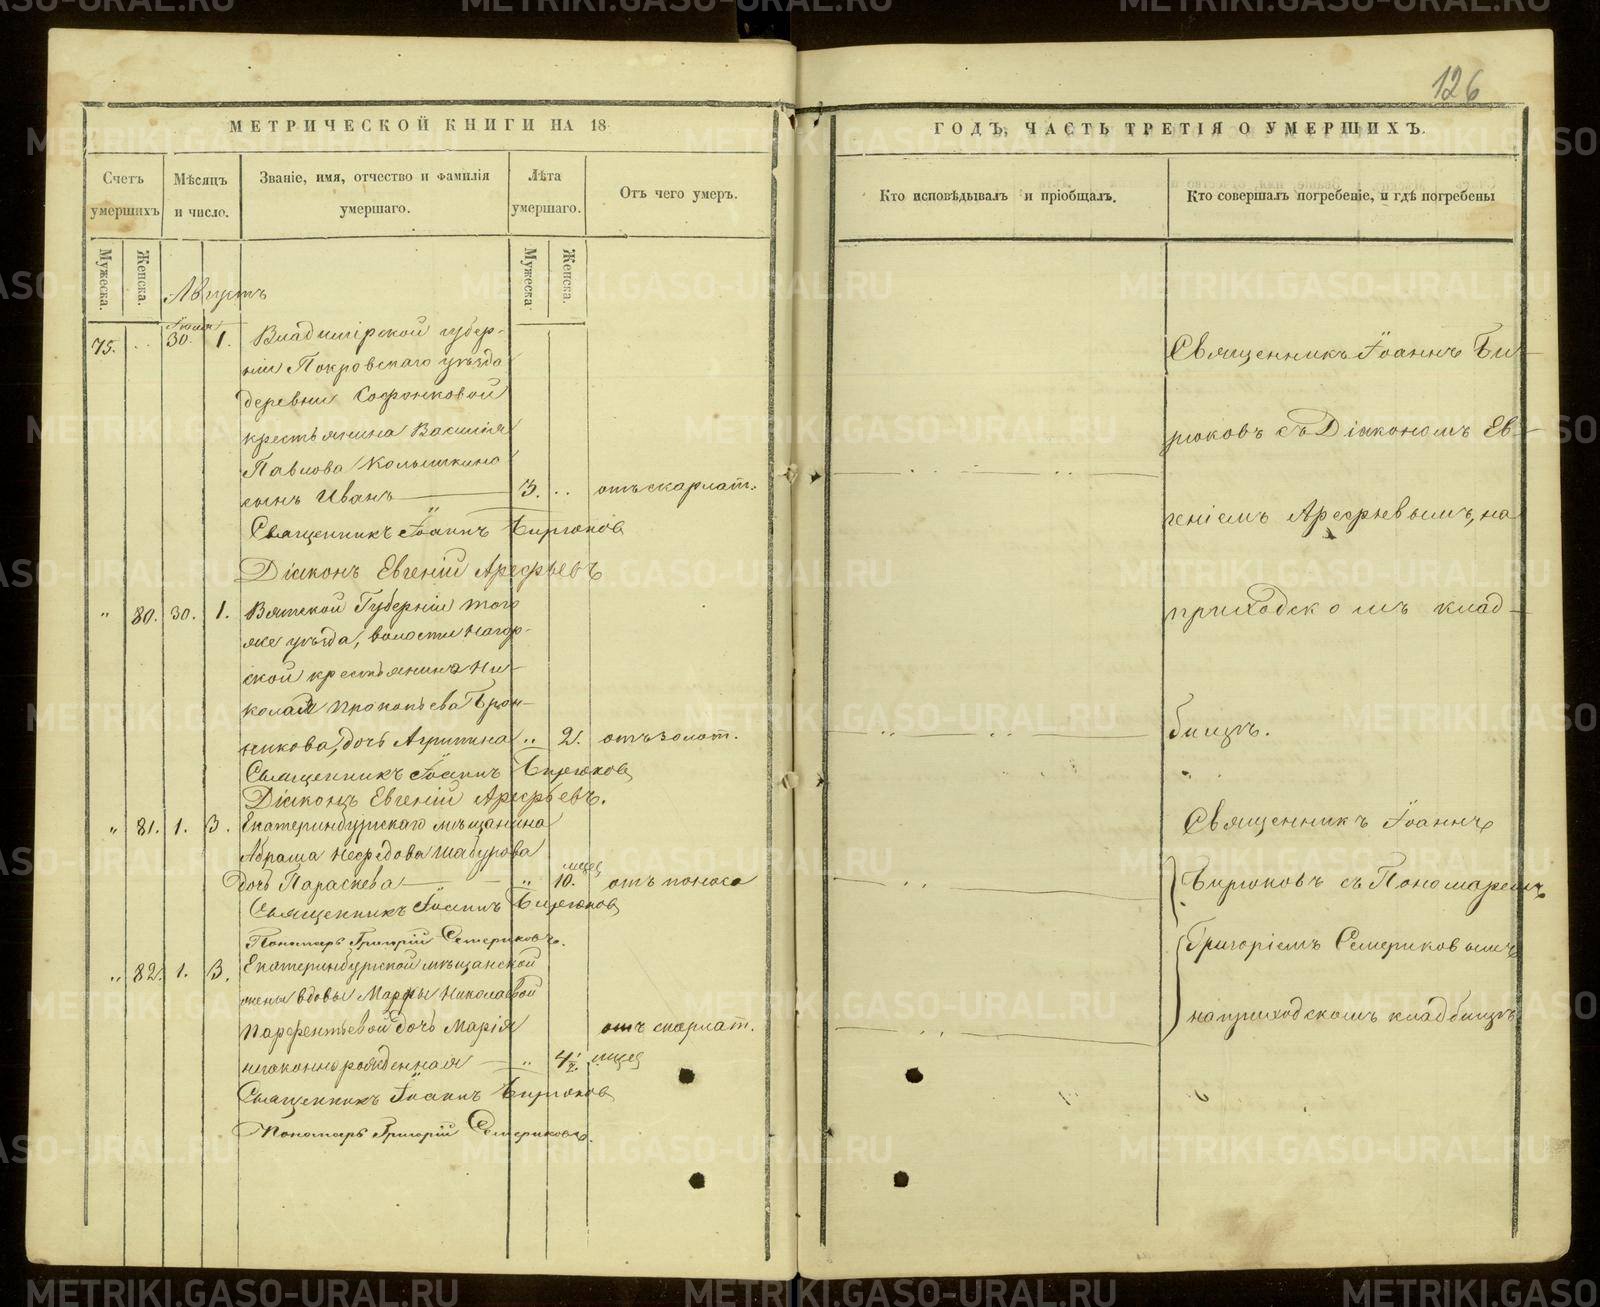 126
МЕТРИЧЕСКОЙ КНИГИ НА 18
ГОДЪ, ЧАСТЬ ТРЕТІЯ О УМЕРШИХЪ.
Счетъ умершихъ
Мѣсяцъ и число.
Званіе, имя, отчество и фамилія умершаго.
Лѣта умершаго.
Отъ чего умеръ.
Кто исповѣдывалъ и пріобщалъ.
Кто совершалъ погребеніе, и гдѣ погребены
Мужеска.
Женска.
Мужеска
Женска.
Августъ
Іюля
75. .. 30. 1. Владимірской губер-
ніи Покровскаго уѣзда
деревни Софонковой
крестьянина Василія
Павлова Колышкина
сынъ Иванъ 3. .. отъ скарлат.
Священникъ Іоаннъ Бирюковъ
Діаконъ Евгеній Арефьевъ
" 80. 30. 1. Вятской Губерніи того
же уѣзда, волости Нагор-
ской крестьянина Ни-
колая Прокопьева Брон-
никова, дочь Агрипина .. 2. отъ золот.
Священникъ Іоаннъ Бирюковъ
Діаконъ Евгеній Арефьевъ.
" 81. 1. 3. Екатеринбургскаго мѣщанина
Абрама Нефедова Шабурова
дочь Параскева " 10. мцев отъ поноса
Священникъ Іоаннъ Бирюковъ
Пономарь Григорій Семериковъ.
" 82. 1. 3. Екатеринбургской мѣщанской
жены вдовы Марфы Николаевой
Парфентьевой дочь Марія отъ скарлат.
незаконнорожденная " 4 1/2. мцев
Священникъ Іоаннъ Бирюковъ
Пономарь Григорій Семериковъ.
Священникъ Іоаннъ Би-
рюковъ съ Діакономъ Ев-
геніемъ Арефьевымъ, на
приходскомъ клад-
бищѣ.
Священникъ Іоаннъ
Бирюковъ съ Пономаремъ
Григоріемъ Семериковымъ
на приходскомъ кладбищѣ
METRIKI.GASO-URAL.RU